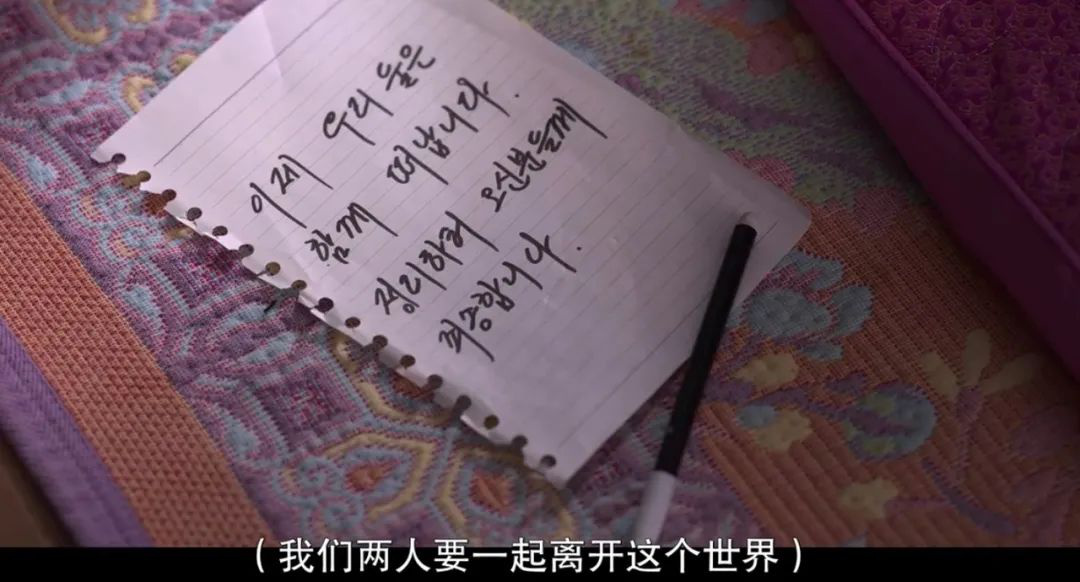 이제 우리 둘은
함께 떠납니다.
정리하러 오신분들께
죄송합니다.
(我们两人要一起离开这个世界)